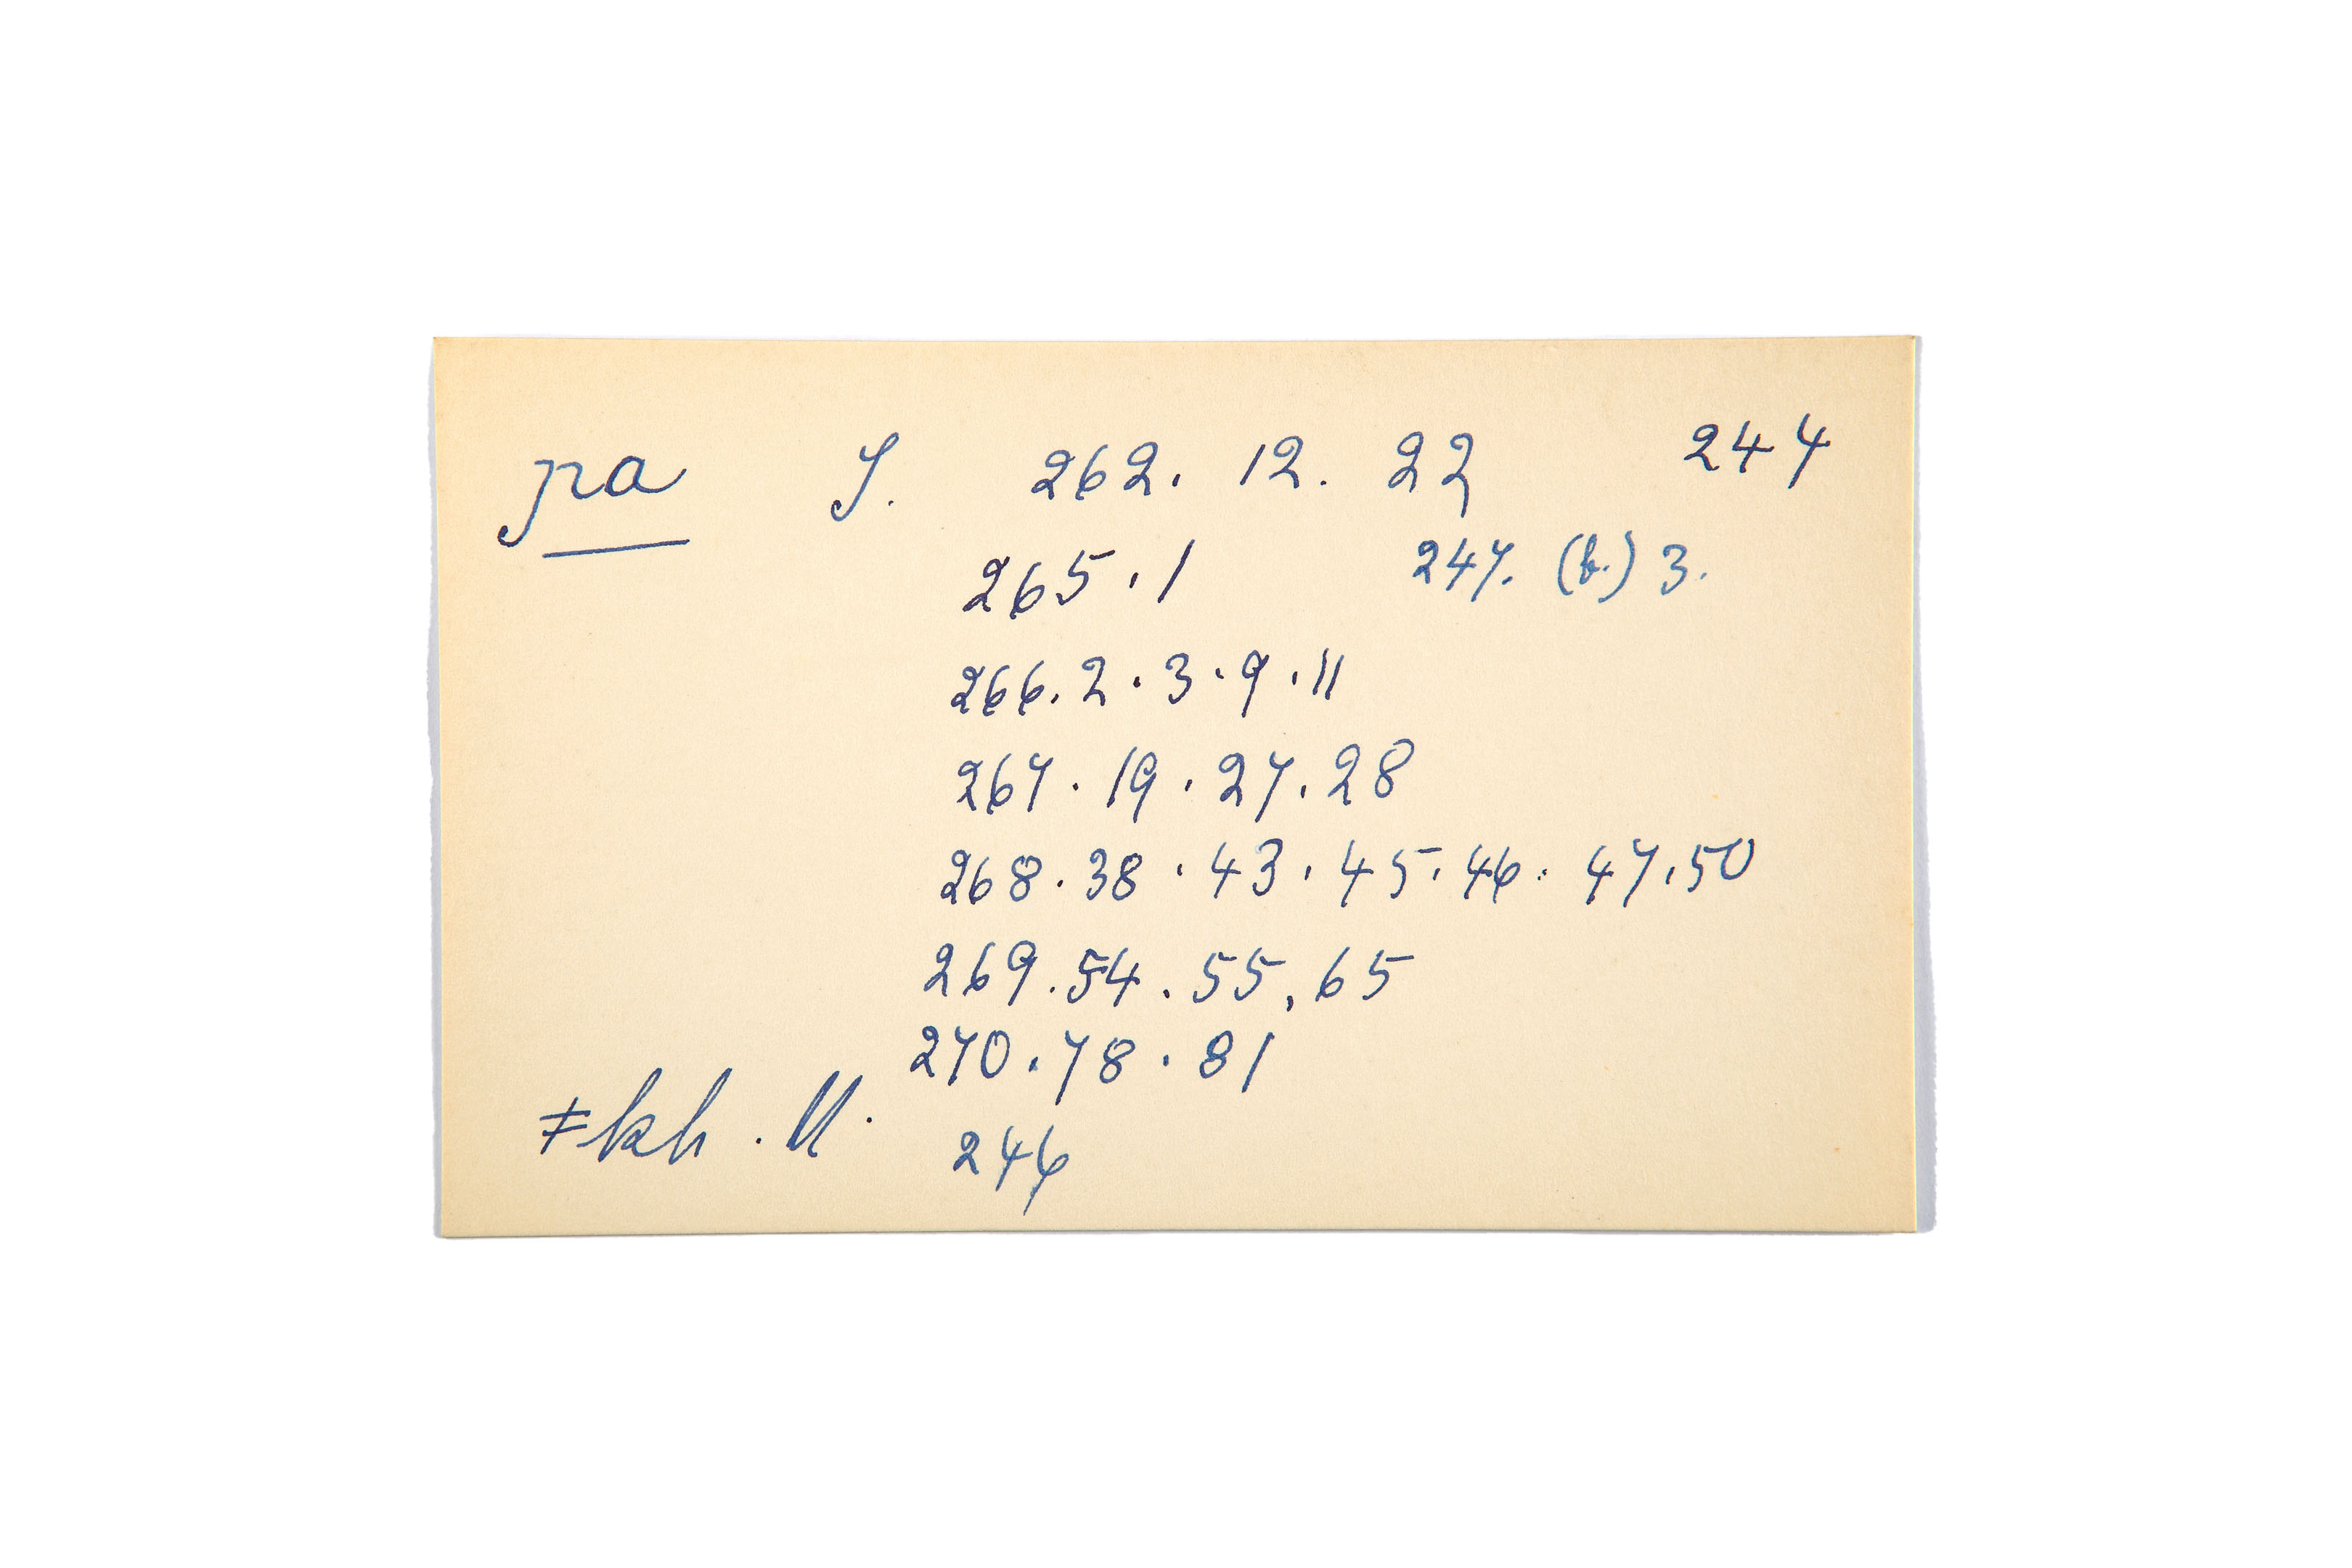 pa S. 262. 12. 22 244
265.1 247. (b.) 3.
266. 2 . 3 . 9 . 11
267 . 19 . 27 . 28
268 . 38 . 43 . 45 . 46 . 47 . 50
269 . 54 . 55 . 65
270 . 78 . 81
≠kh . II. 246